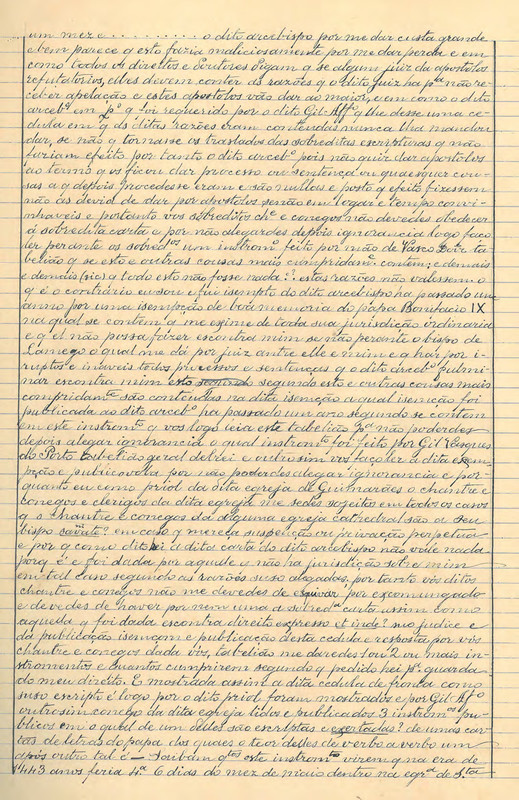 um mez e . . . . . . . . . . o dito arcebispo por me dar custa grande
e bem parece q esto fazia maliciosamente por me dar perda e em
como todos os direitos e Doutores digam q se algum juiz da apostolos
refutatorios, elles devem conter as razões q o dito juiz ha pª não re-
ceber apelação e estes apostolos vão dar ao maior, e em como o dito
arcebº em pº q foi requerido por o dito Gil Affº q lhe desse uma ce-
dula em q as ditas razões eram contendas nunca lha mandou
dar, se não q tornasse os traslados das sobreditas escripturas q não
fariam efeito por tanto o dito arcebº pois não quiz dar apostolos
ao termo q os ficou dar processo ou sentença ou quaesquer cou-
sas a q depois procedesse eram e são nullas e posto q efeito fixessem
não as deviá de dar por apostolos senão em logar e tempo convi-
nhaveis e portanto vos sobreditos chᵉ e conegos não devedes obedecer
á sobredita carta e por não alegardes depois ignorancia logo faço
ler perante os sobredᵒˢ um instromᵗᵒ feito por mão de Vasco Dotr ta-
belião q se este e outras cousas mais cumpridamᵗᵉ contem; e demais
e demais (sic) a todo este não fosse nada?? estas razões não valessem o
q é o contrário eu sou e fui isempto do dito arcebispo ha passado um
anno por uma isempção de boá memoria do papa Bonifacio IX
na qual se contem q me exime de toda sua jurisdição ordinaria
e q el não possa fazer contra mim se não perante o bispo de
Lamego o qual me dá por juiz antre elle e mim e q haz por i-
rruptos e inaveis todos processos e sentenças q o dito arcebº fulmi-
nar escontra mim esto segundo segundo esto e outras cousas mais
compridamᵗᵉ são conteudas na dita isenção a qual isenção foi
publicada ao dito arcebº ha passado um ano segundo se contem
em este instromᵗᵒ q vos logo leia este tabelião pª não poderdes
depois alegar ignorancia o qual instromᵗᵒ foi feito por Gil Esques
do Porto tabelião geral del rei e outrosim vos faço ler a dita exem-
pção e publical-a por não poderdes alegar ignorancia e por
quanto eu como priol da dita egreja de Guimarães o chantre e
conegos e clerigos da dita egreja me sedes sojeitos em todos os casos
q o chantre e conegos da alguma egreja cathedral são a seu
bispo savate? em caso q mereça suspenção ou privação perpetua
e por q como dito hei a dita carta do dito arcebispo não vale nada
porq é e foi dada por aquelle q não ha jurisdição sobre mim
em tal caso segundo as razoás suso alegadas, por tanto vós ditos
chantre e conegos não me devedes de esquivar por excomungado
e devedes de haver por nem uma a sobredᵃ carta assim como
aquella q foi dada escontra direito expresso et inde? suo judice e
da publicação isempçom e publicação desta cedula e resposta por vós
chantre e conegos dada vós, tabelião me daredes 1 ou 2 ou mais in-
stromentos e quantos cumprirem segundo q pedido hei pª guarda
do meu direito. E mostrada assim a dita cedula de fronta como
suso escripto é logo por o dito priol foram mostrados e por Gil Affº
outrosim conego da dita egreja lidos e publicados 3 instromᵗᵒˢ pu-
blicos em o qual de um delles são escriptas e exertadas? de umas car-
tas de letras do papa dos quaes o teor delles de verbo a verbo um
após outro tal é — Saibam qᵗᵒˢ este instromᵗᵒ virem q na era de
1443 anos feria 4ª 6 dias do mez de maio dentro na egrª de Sᵗᵃ